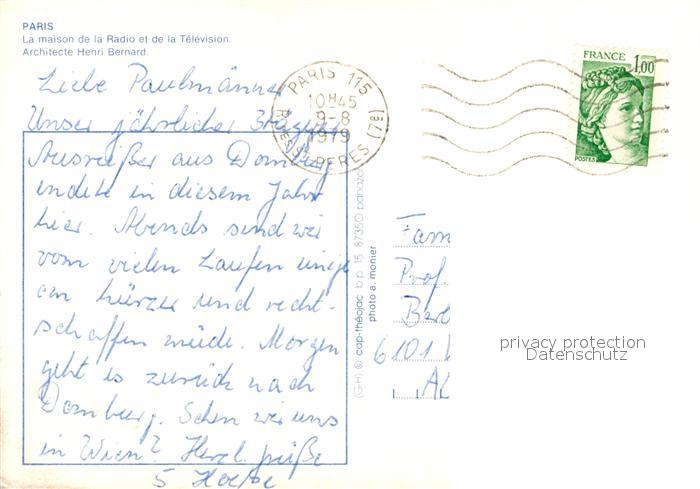 PARIS
La maison de la Radio et de la Télévision.
Architecte Henri Bernard.
Liebe Paulmänner
Unser jährlicher
Ausreißer aus Domburg
endete in diesem Jahr
hier. Abends sind wir
vom vielen Laufen einige
cm kürzer und recht-
schaffen müde. Morgen
geht es zurück nach
Domburg. Sehen wir uns
in Wien? Herzl. Grüße
5
PARIS 115
10H45
9-8
1979
PERES (7E)
FRANCE 1,00
POSTES
(GH) © cap-théojac b.p. 15 87350 panazol
photo a. monier
Fam
Prof.
Berl
6101
privacy protection
Datenschutz